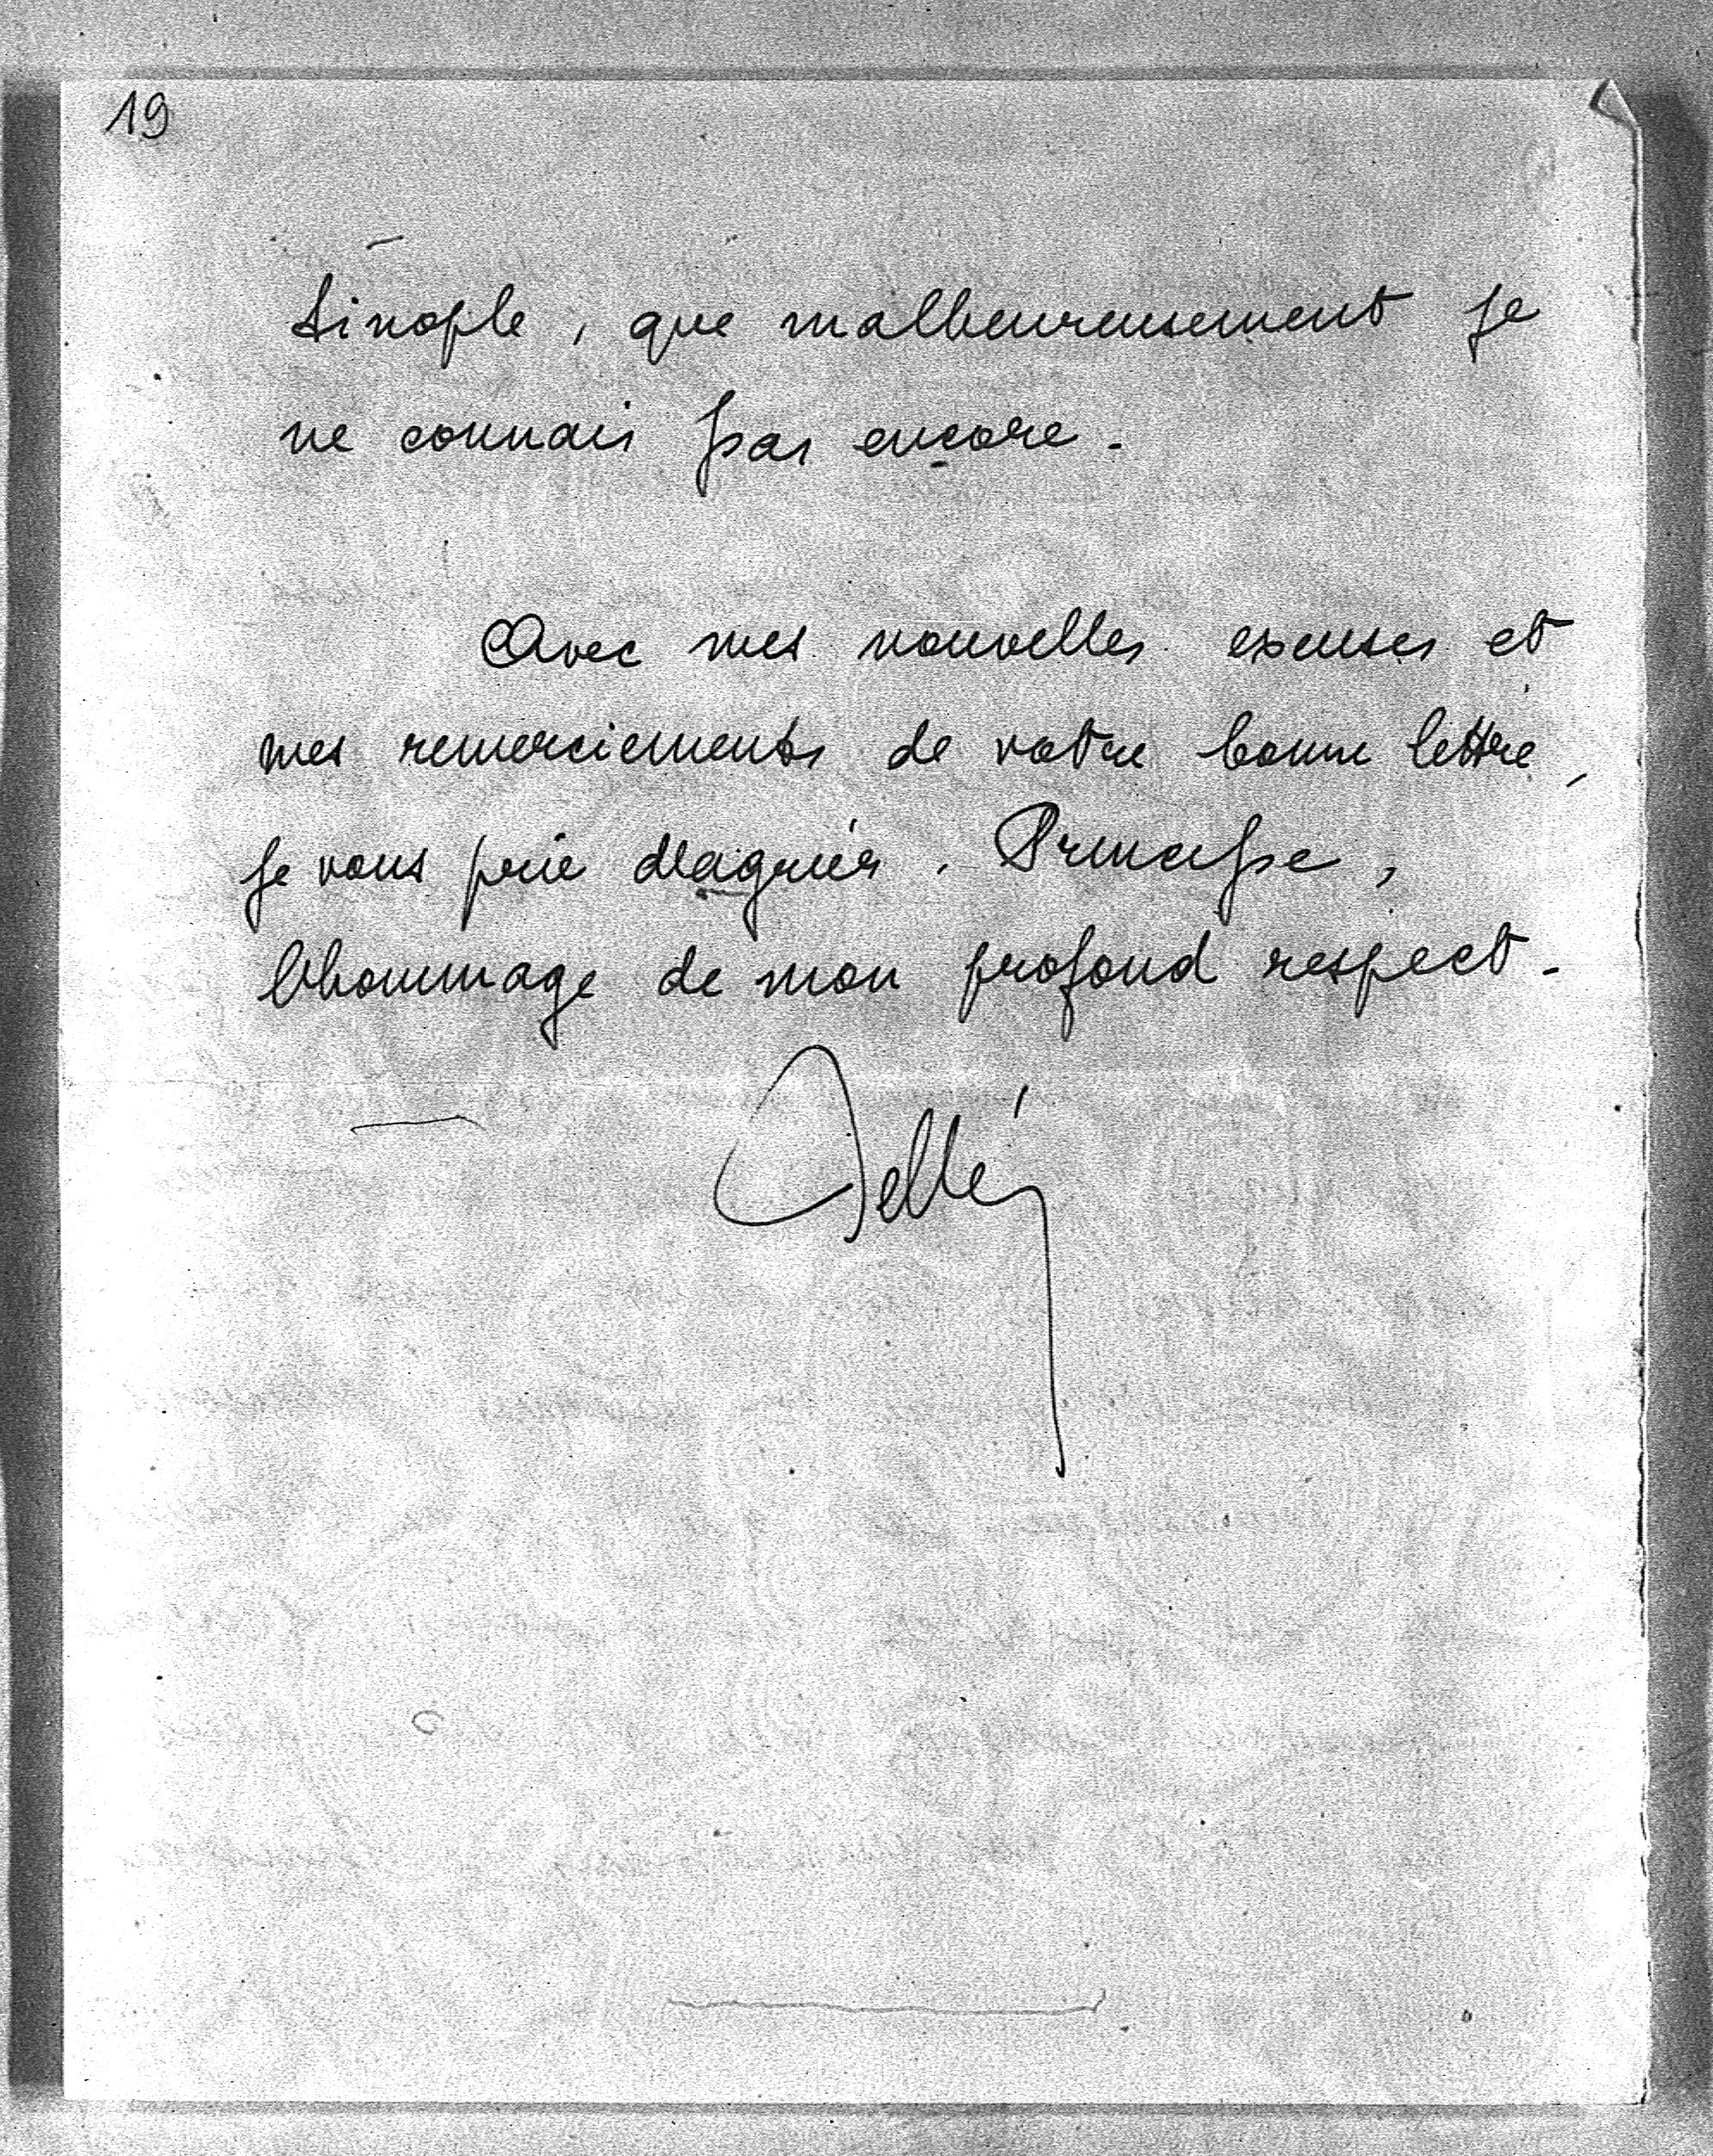 19
tinople, que malheureusement je
ne connais pas encore.
Avec mes nouvelles excuses et
mes remerciements de votre bonne lettre,
je vous prie d'agréer, Princesse,
l'hommage de mon profond respect.